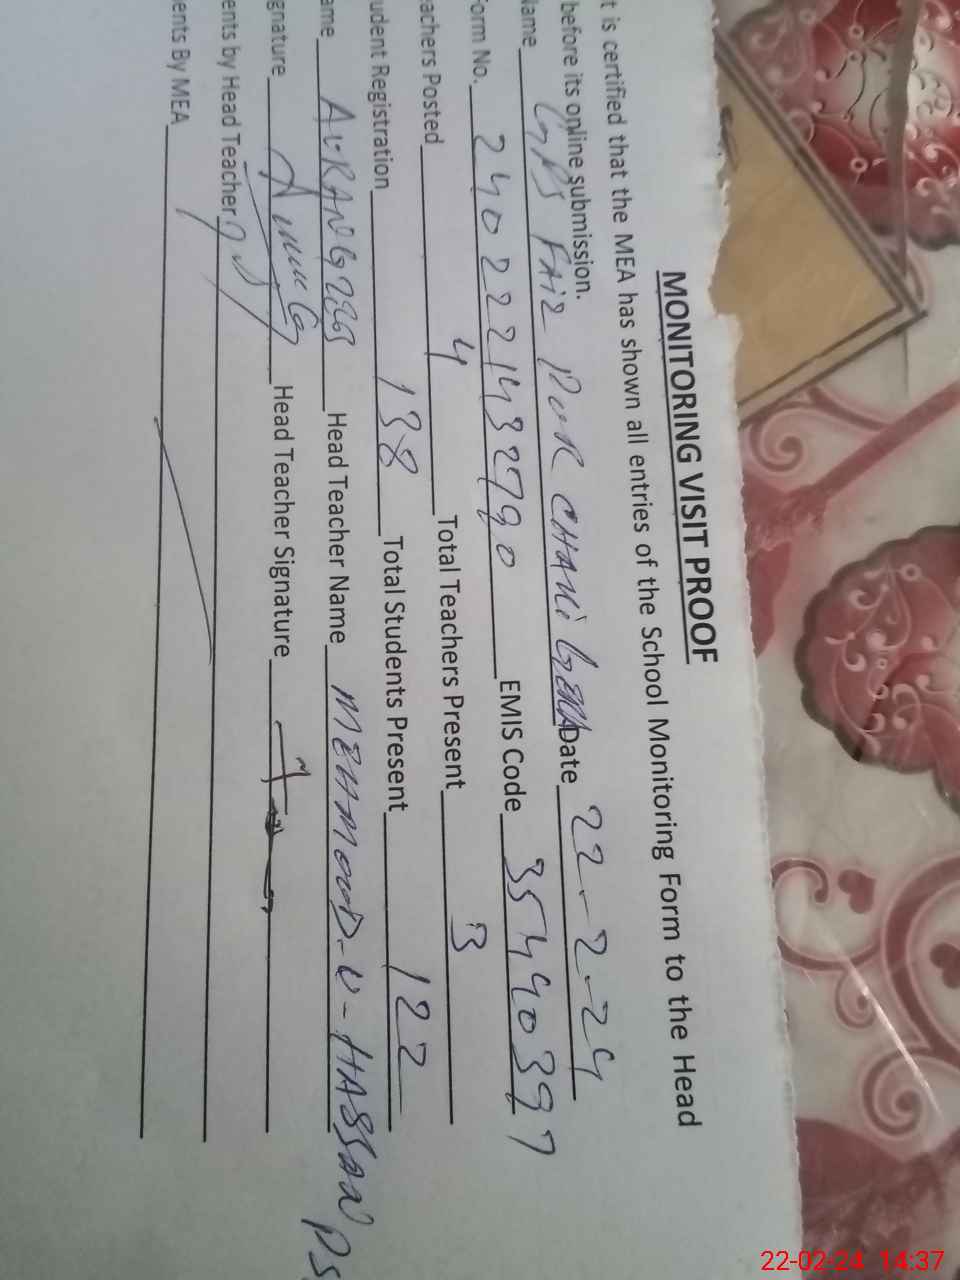 MONITORING VISIT PROOF
t is certified that the MEA has shown all entries of the School Monitoring Form to the Head
before its online submission.
Name GPS FAIZ PUR CHAKI Date 22-2-24
orm No. 2402221432790 EMIS Code 35440397
eachers Posted 4 Total Teachers Present 3
udent Registration 138 Total Students Present 122
ame AURANGZEB Head Teacher Name MEHMOOD-U-HASSAN
gnature Head Teacher Signature
ents by Head Teacher
ents By MEA
22-02-24 14:37